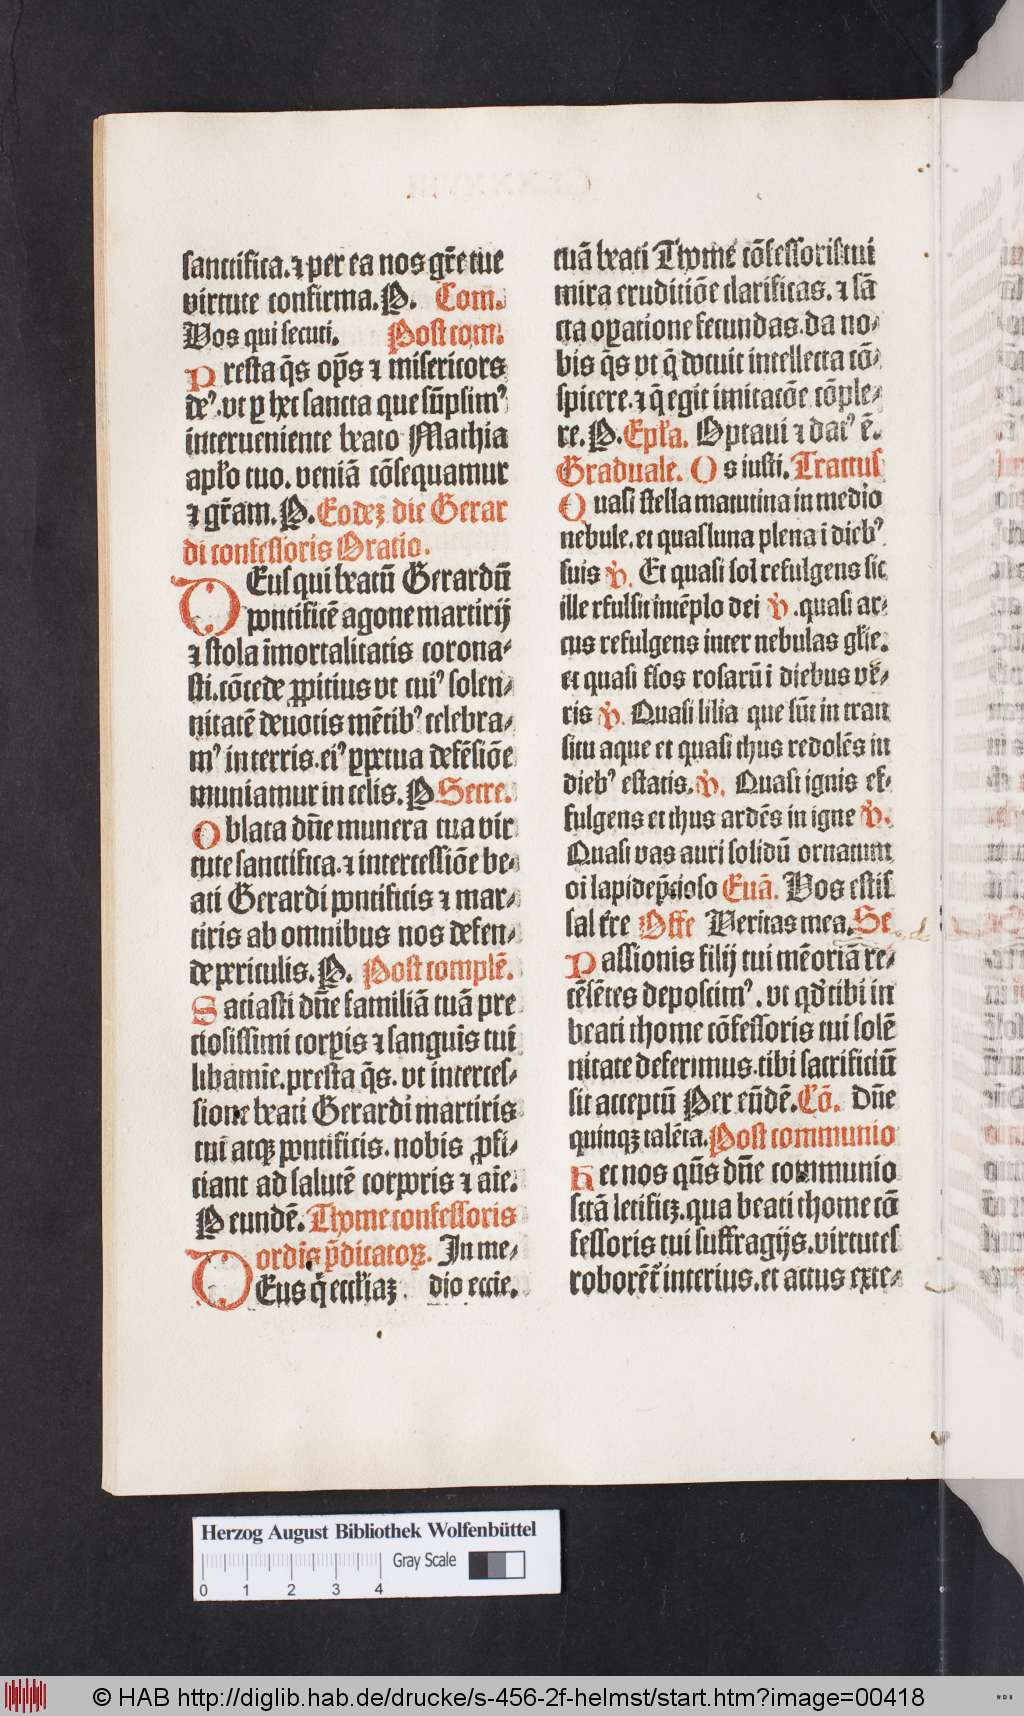 sanctifica. ⁊ per ea nos gr̄e tue
virtute confirma. P. Com.
Vos qui secuti. Post com.
Presta q̄s op̄s ⁊ misericors
deꝰ. vt ꝑ hec sancta que sūpsimꝰ
interueniente beato Mathia
apl̄o tuo. veniā cōsequamur
⁊ gr̄am. P. Eodeꝫ die Gerar
di confessoris Oratio.
DEus qui beatū Gerardū
pontificē agone martirij
⁊ stola īmortalitatis corona⸗
sti. cōcede ꝓpitius vt cuiꝰ solen⸗
nitatē deuotis mētibꝰ celebra⸗
mꝰ in terris. eiꝰ ꝑpetua defēsiōe
muniamur in celis. P. Secre.
Oblata dn̄e munera tua vir
tute sanctifica. ⁊ intercessiōe be⸗
ati Gerardi pontificis ⁊ mar⸗
tiris ab omnibus nos defen⸗
de periculis. P. Post complē.
Saciasti dn̄e familiā tuā pre
ciosissimi corꝑis ⁊ sanguīs tui
libamīe. presta q̄s. vt interces⸗
sione beati Gerardi martiris
tui atqꝫ pontificis. nobis ꝓfi⸗
ciant ad salutē corporis ⁊ aīe.
P eundē. Thome confessoris
ordīs p̄dicatoꝝ. In me⸗
DEus q̄ eccl̄iaꝫ dio eccie.
tuā beati Thome cōfessoris tui
mira eruditiōe clarificas. ⁊ sā
cta oꝑatione fecundas. da no⸗
bis q̄s vt q̄ docuit intellecta cō⸗
spicere. ⁊ q̄ egit imitatōe cōple⸗
re. P. Epl̄a. Optaui ⁊ datꝰ ē.
Graduale. Os iusti. Tractus
Quasi stella matutina in medio
nebule. et quasi luna plena ī diebꝰ
suis ℣. Et quasi sol refulgens sic
ille rfulsit ī tēplo dei ℣. quasi ar⸗
cus refulgens inter nebulas gl̄ie.
et quasi flos rosarū ī diebus ve⸗
ris ℣. Quasi lilia que sūt in tran
situ aque et quasi thus redolēs in
diebꝰ estatis. ℣. Quasi ignis ef⸗
fulgens et thus ardēs in igne ℣.
Quasi vas auri solidū ornatum
oī lapide p̄cioso Euā. Vos estis
sal tr̄e Offe Veritas mea. Se
Passionis filij tui mēoriā re⸗
cēsētes deposcimꝰ. vt qd̓ tibi in
beati thome cōfessoris tui solē
nitate deferimus. tibi sacrificiū
sit acceptū Per eūdē. Cō. Dn̄e
quinqꝫ talēta. Post communio
Hec nos qūs dn̄e communio
sctā letificꝫ. qua beati thome cō
fessoris tui suffragijs. virtutes
roborēt̄ interius. et actus exte⸗
Herzog August Bibliothek Wolfenbüttel
Gray Scale
0 1 2 3 4
© HAB http://diglib.hab.de/drucke/s-456-2f-helmst/start.htm?image=00418